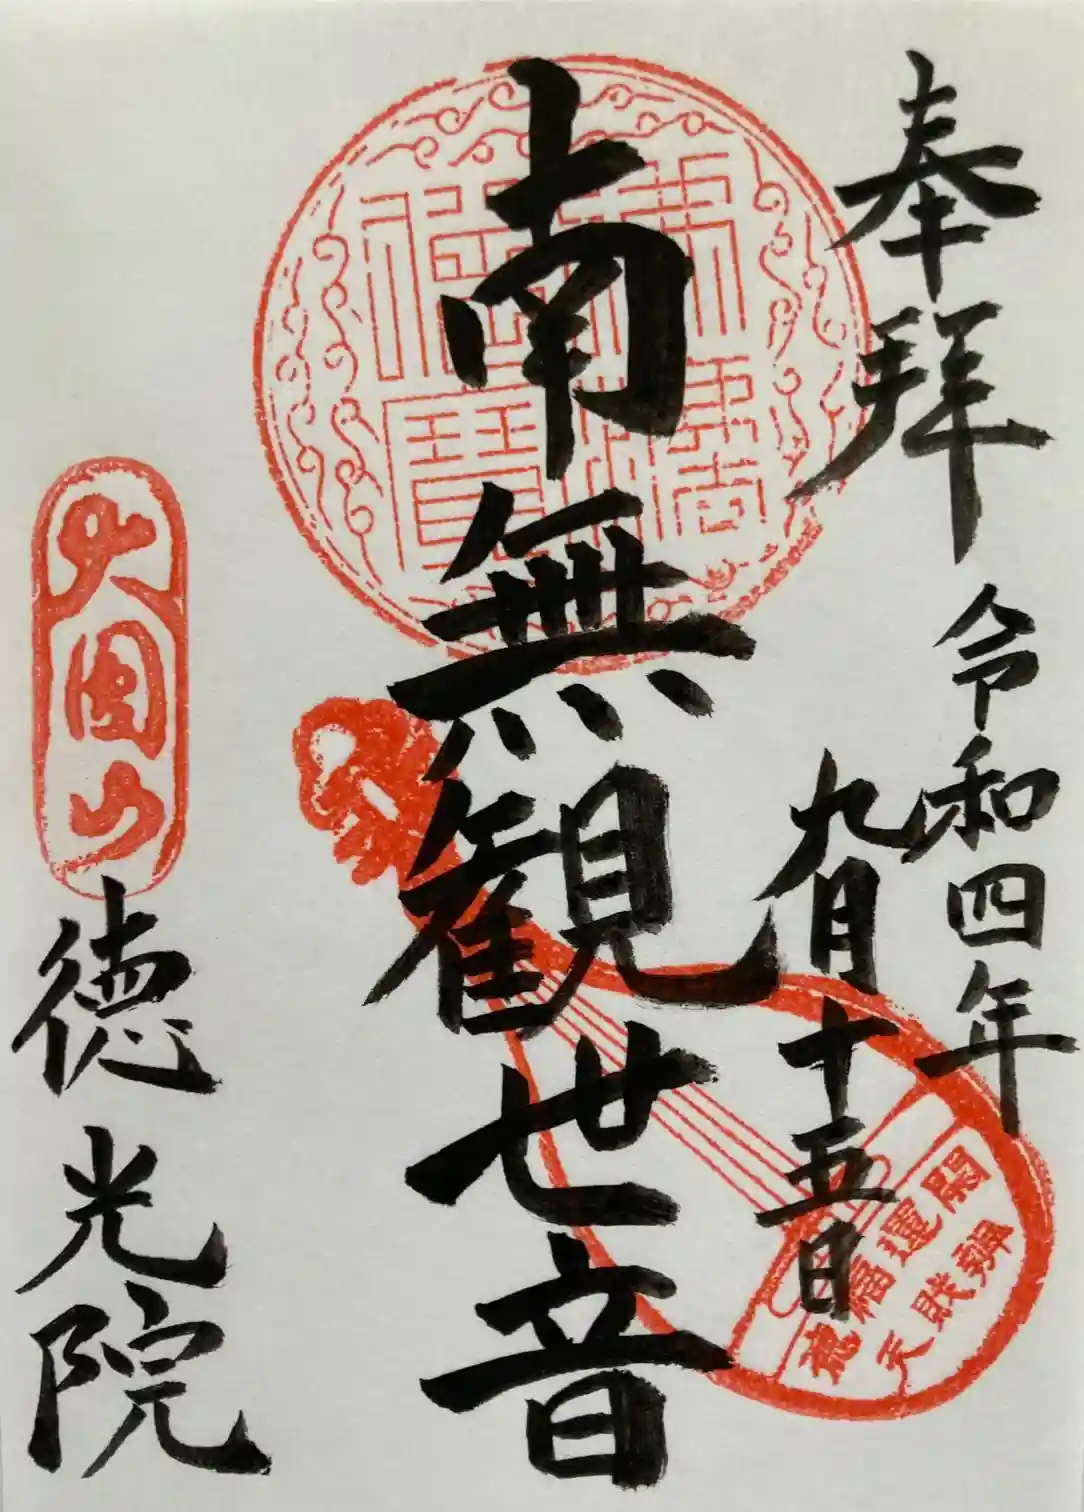 奉拝
令和四年
九月十五日
南無観世音
開運
福徳
辨財天
大圓山
徳光院